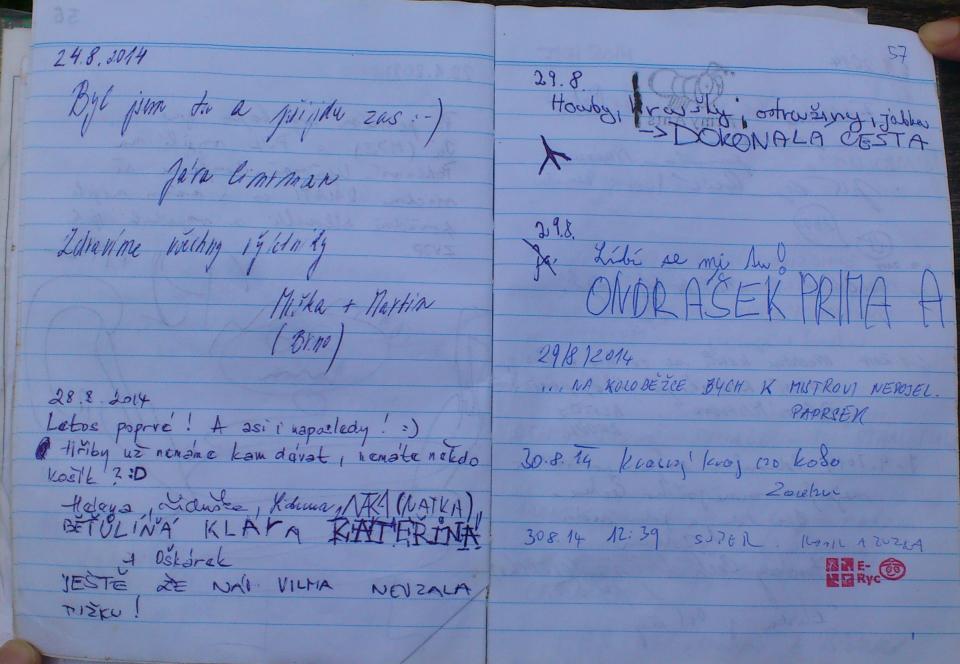 24.8.2014
Byl jsem tu a přijdu zas :-)
Jára Cimrman
Zdravíme všechny výletníky
Miška + Martin
(Brno)
28.8. 2014
Letos poprvé! A asi i naposledy! :)
Hřiby už nemáme kam dávat, nemáte někdo
košík? :D
Helena, Liduška, NAŤKA (NAŤKA),
BĚŤULÍNA KLÁRA KATEŘINA
+ Oškárek
JEŠTĚ, ŽE NÁM VILMA NEVZALA
TUŽKU!
57
29.8.
Houby, hrušky, ostružiny, jablka
-> DOKONALA CESTA
29.8.
Líbí se mi tu!
ONDRAŠEK PRIMA A
29/8/2014
... NA KOLOBĚŽCE BYCH K MISTROVI NEDOJEL.
PAPRSEK
30.8.14 krásný kraj pro kolo
30.8.14 12:39 SUPER. A ZUZKA
E-
Ryc